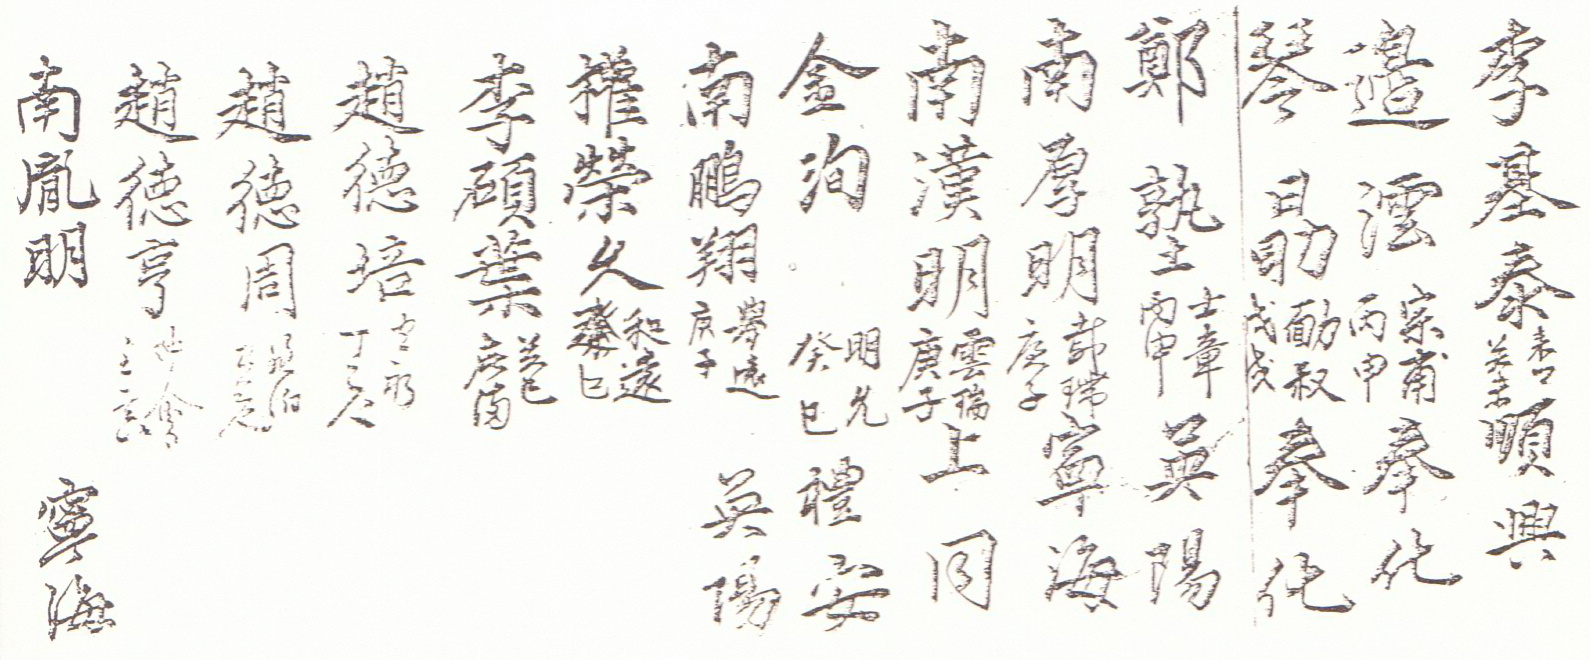 李基泰 順興
邉澐 宗甫 丙申 奉化
琴勗 勔叔 戊戌 奉化
鄭塾 士章 丙申 英陽
南厚明 庚子 寧海
南漢明 雲瑞 庚子 上同
金洵 明允 癸巳 禮安
南鵬翔 擧遠 庚子 英陽
權榮久 和遠 癸巳
李碩葉
趙德培
趙德周
趙德亨
南胤明 寧海